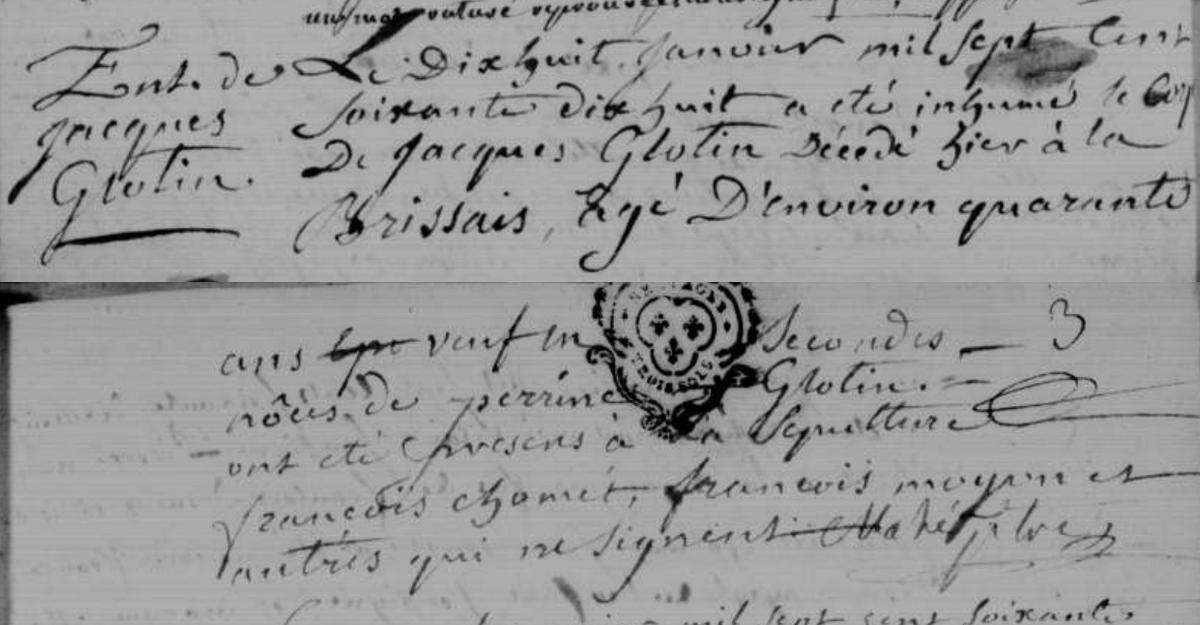 Ent. de
Jacques
Glotin.
Le Dixhuit Janvier mil Sept Cent
Soixante dix huit a eté inhumé le Corp
De Jacques Glotin Décédé hier à la
Brissais, Agé D'environ quarante
ans veuf en Secondes 3
nôces de perrine Glotin.
ont eté presens à la Sepulture
françois chomet, francois moyon et
autres qui ne Signent. Mahé
mil sept cent soixante